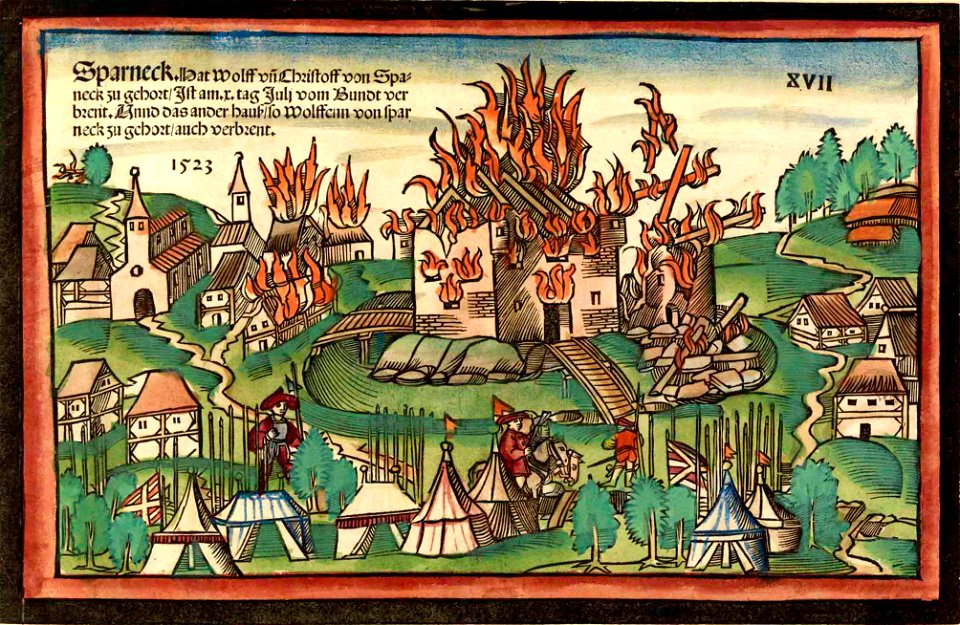 Sparneck. Hat Wolff vñ Christoff von Spa-
neck zu gehort/ Ist am. x. tag Julj vom Bundt ver
brent. Vnnd das ander hauß/ so Wolffenn von spar
neck zu gehort/ auch verbrent.
XVII
1523